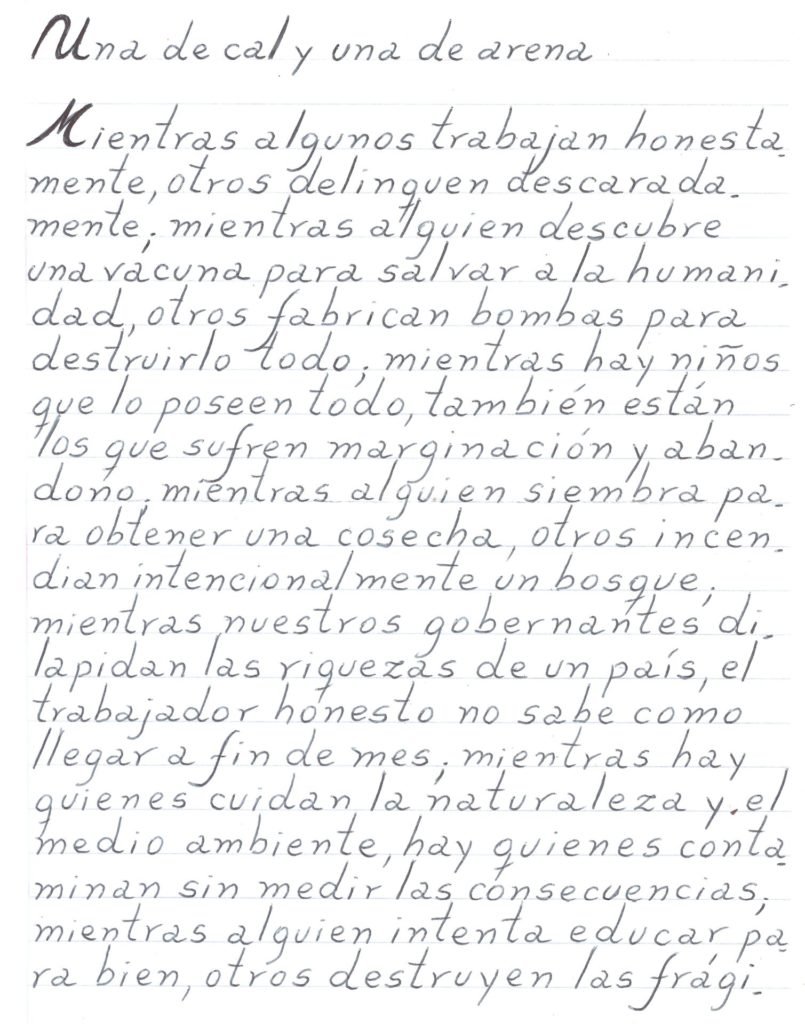 Una de cal y una de arena
Mientras algunos trabajan honesta-
mente, otros delinquen descarada-
mente; mientras alguien descubre
una vacuna para salvar a la humani-
dad, otros fabrican bombas para
destruirlo todo; mientras hay niños
que lo poseen todo, también están
los que sufren marginación y aban-
dono; mientras alguien siembra pa-
ra obtener una cosecha, otros incen-
dian intencionalmente un bosque;
mientras nuestros gobernantes di-
lapidan las riquezas de un país, el
trabajador honesto no sabe como
llegar a fin de mes; mientras hay
quienes cuidan la naturaleza y el
medio ambiente, hay quienes conta-
minan sin medir las consecuencias;
mientras alguien intenta educar pa-
ra bien, otros destruyen las frági-